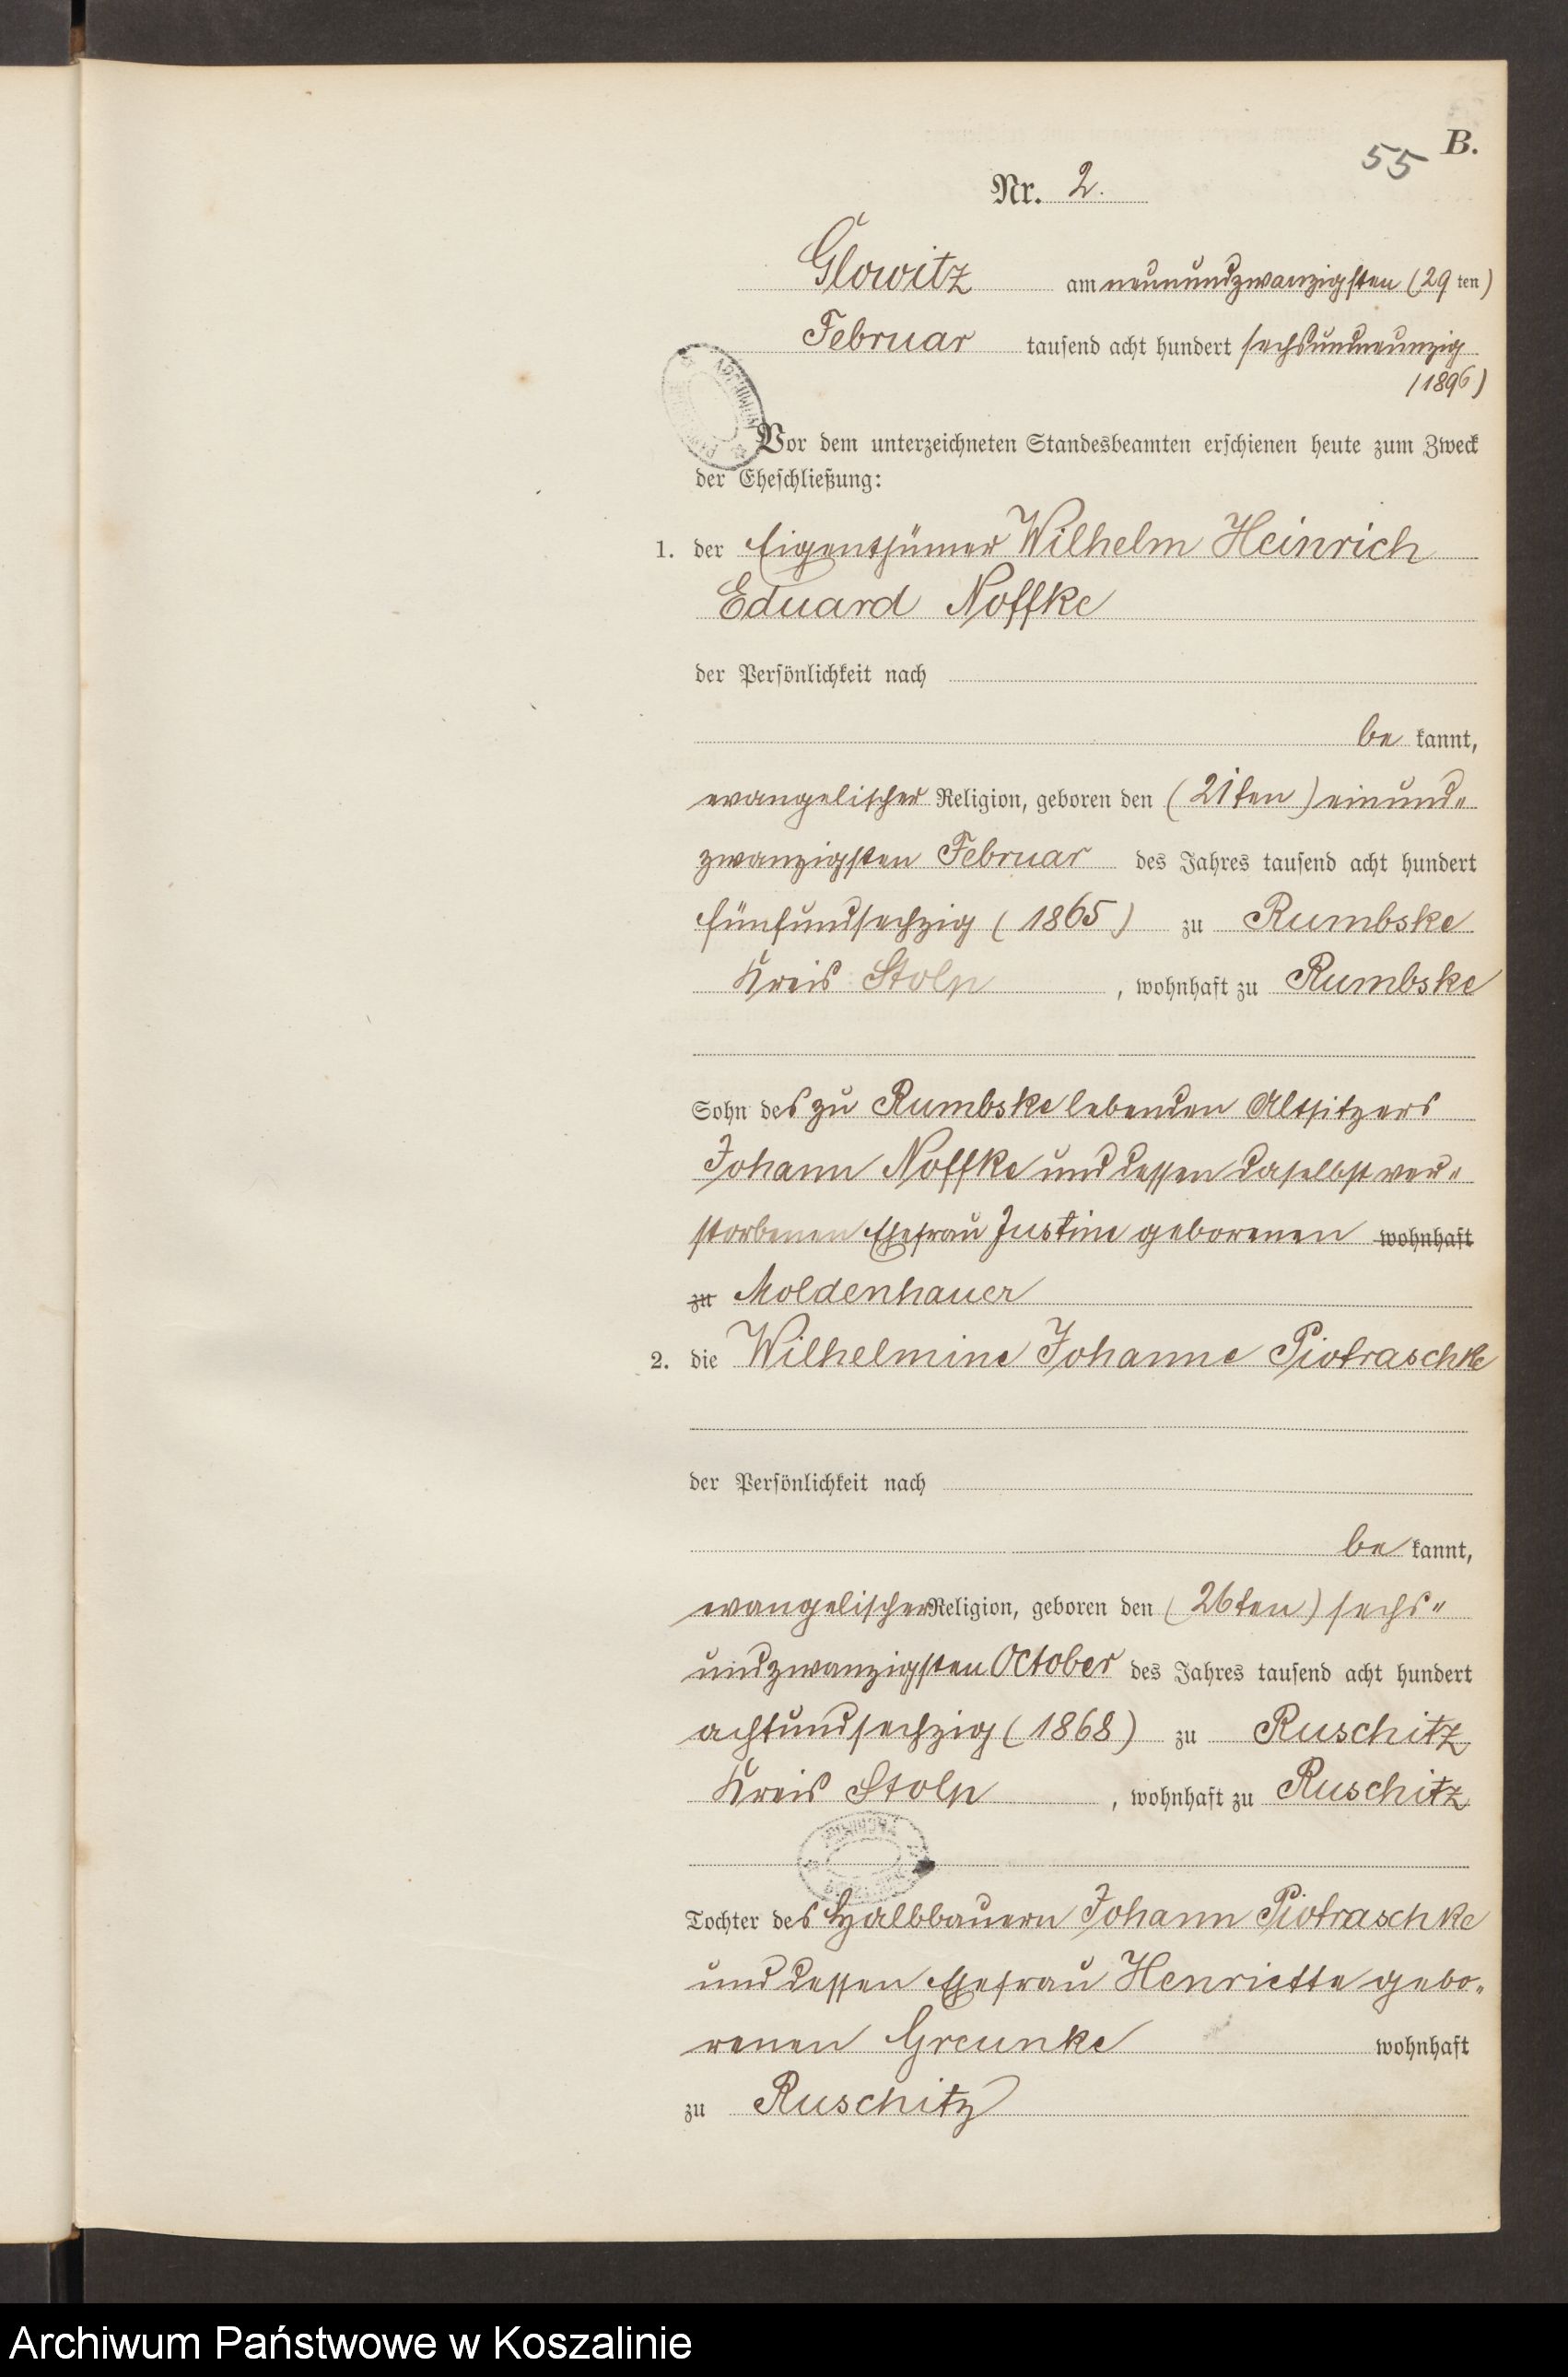 B.
55
Nr. 2.
Glowitz am neunundzwanzigsten (29 ten)
Februar tausend acht hundert sechsundneunzig
(1896)
Vor dem unterzeichneten Standesbeamten erschienen heute zum Zweck
der Eheschließung:
1. der Eigenthümer Wilhelm Heinrich
Eduard Noffke
der Persönlichkeit nach
be kannt,
evangelischer Religion, geboren den (21ten) einund„
zwanzigsten Februar des Jahres tausend acht hundert
fünfundsechzig (1865) zu Rumbske
Kreis Stolp , wohnhaft zu Rumbske
Sohn des zu Rumbske lebenden Altsitzers
Johann Noffke und dessen daselbst ver„
storbenen Ehefrau Justine geborenen wohnhaft
zu Moldenhauer
2. die Wilhelmine Johanne Piotraschke
der Persönlichkeit nach
be kannt,
evangelischer Religion, geboren den (26ten) sechs„
undzwanzigsten October des Jahres tausend acht hundert
achtundsechzig (1868) zu Ruschitz
Kreis Stolp , wohnhaft zu Ruschitz
Tochter des Halbbauern Johann Piotraschke
und dessen Ehefrau Henriette gebo„
renen Greunke wohnhaft
zu Ruschitz
Archiwum Państwowe w Koszalinie